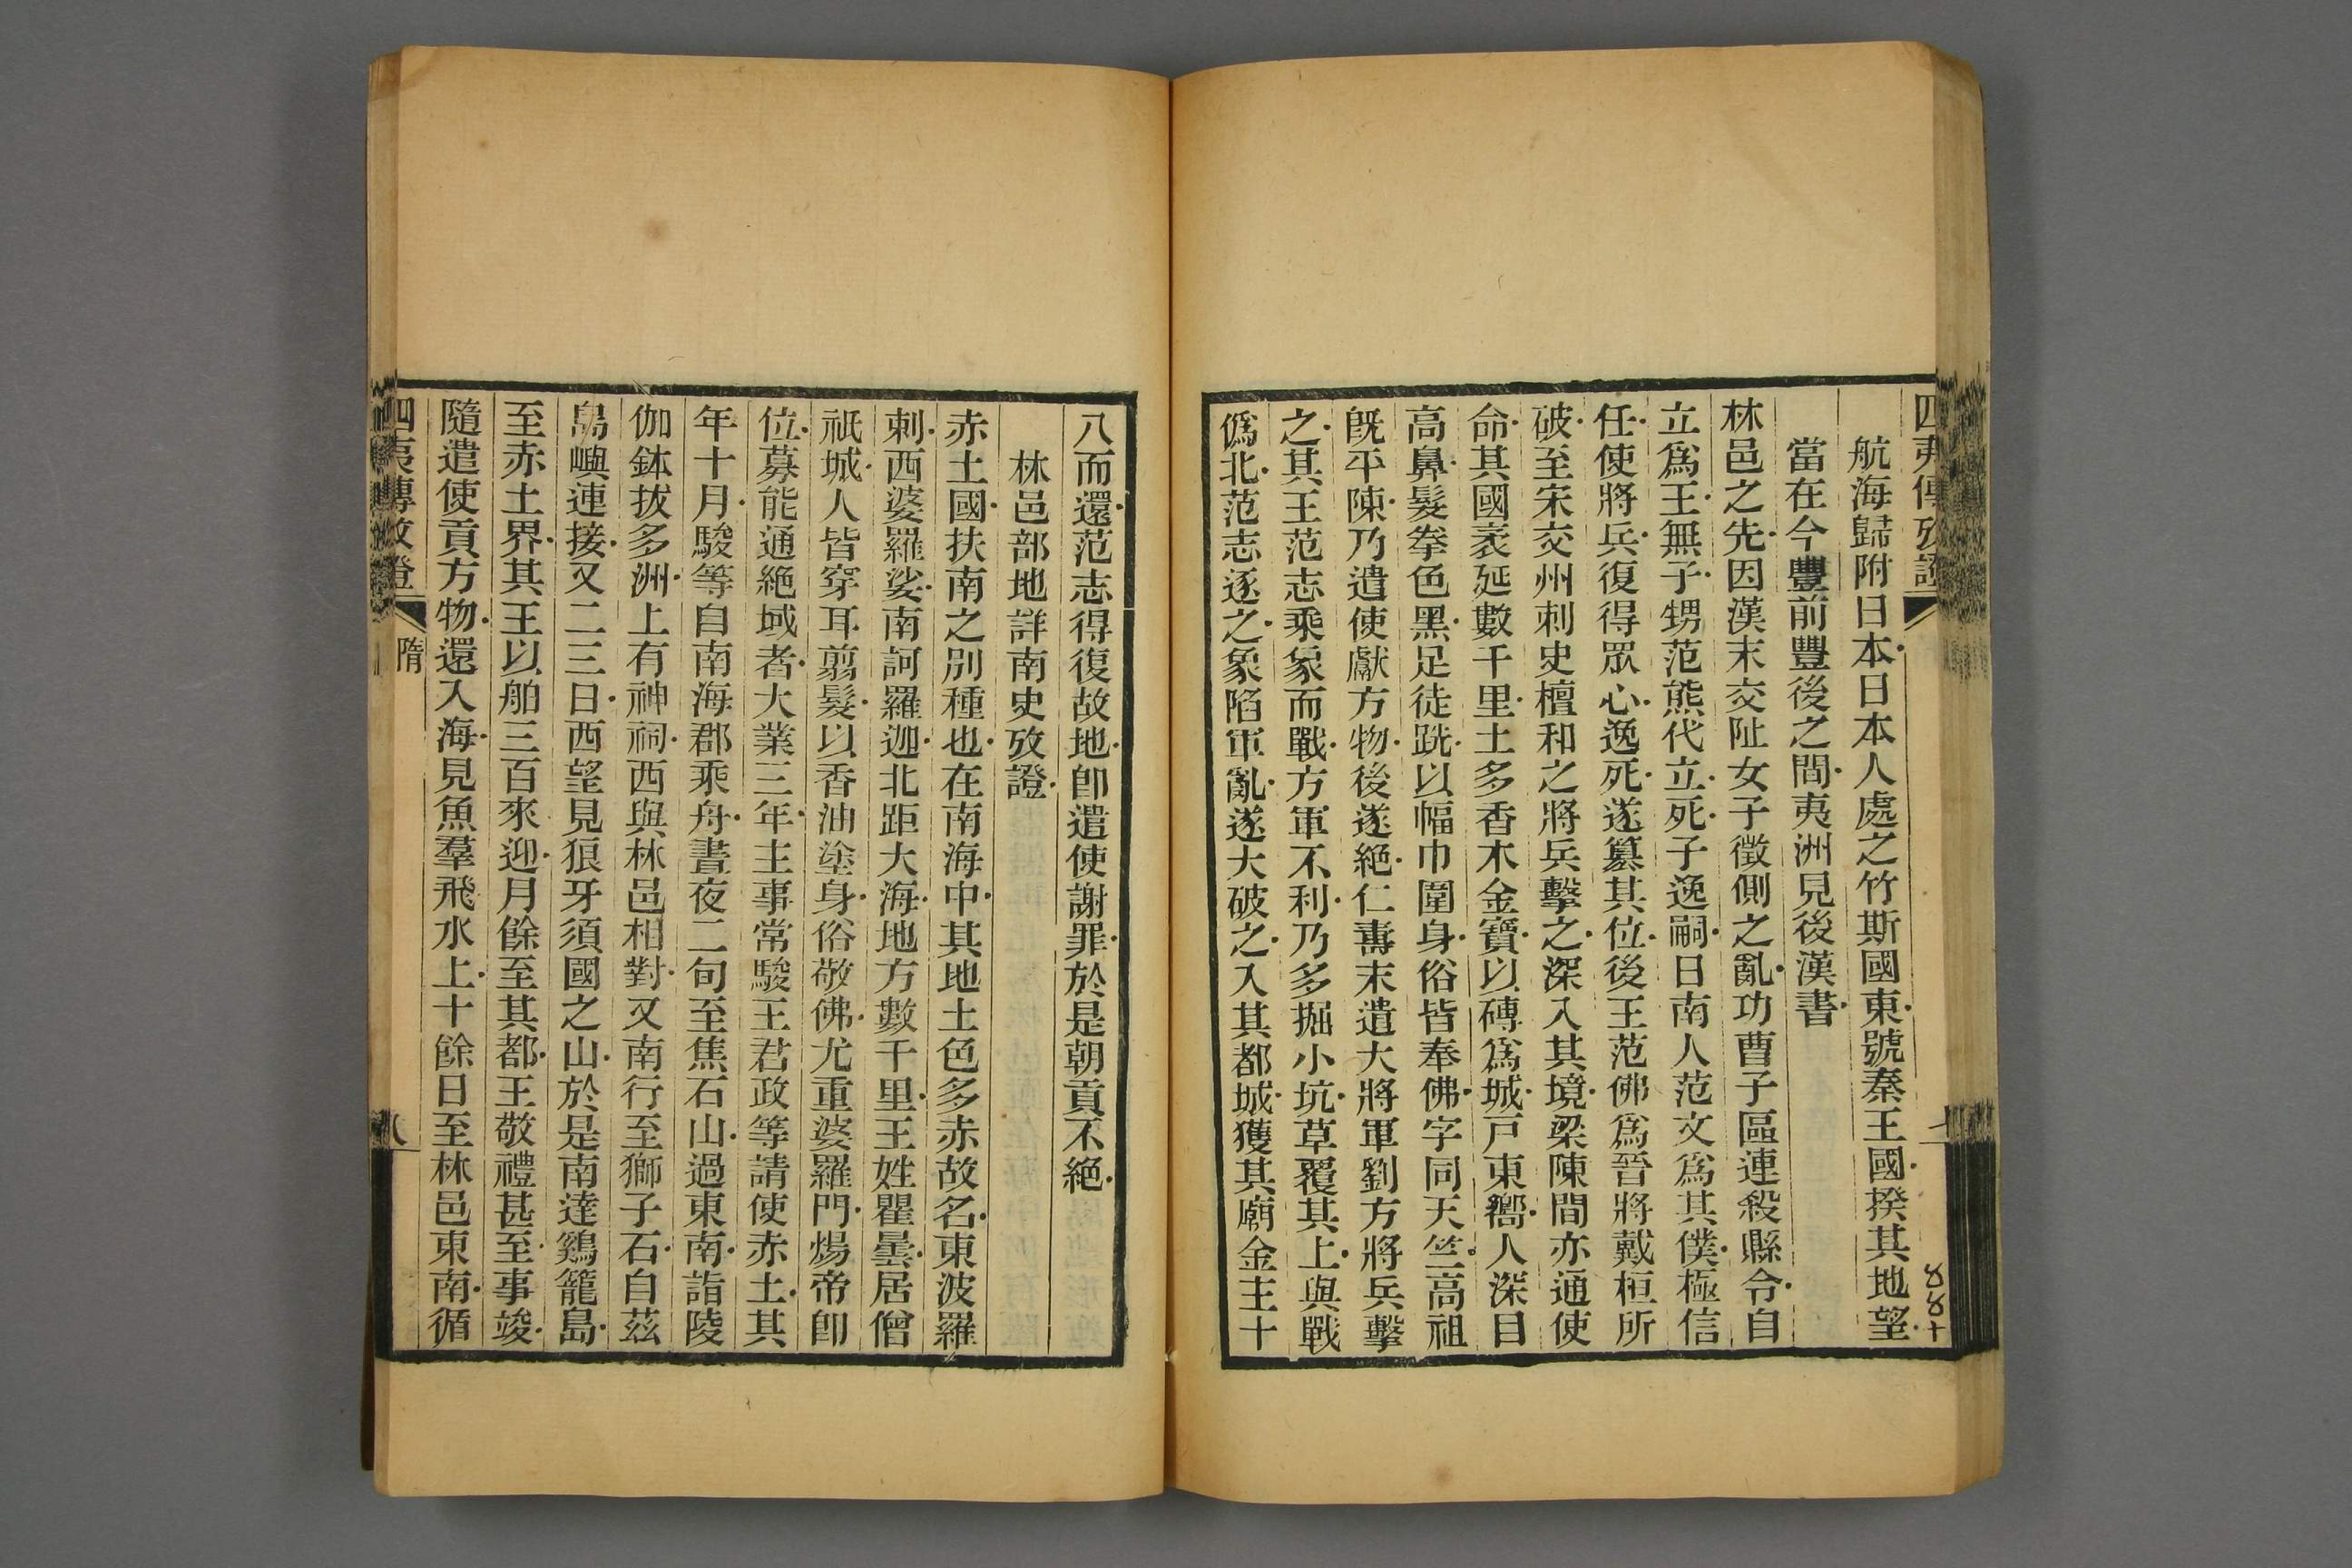 四夷傳攷證
七
航海歸附日本日本人處之竹斯國東號秦王國揆其地望
當在今豐前豐後之間夷洲見後漢書
林邑之先因漢末交阯女子徵側之亂功曹子區連殺縣令自
立爲王無子甥范熊代立死子逸嗣日南人范文爲其僕極信
任使將兵復得眾心逸死遂簒其位後王范佛爲晉將戴桓所
破至宋交州刺史檀和之將兵擊之深入其境梁陳間亦通使
命其國袤延數千里土多香木金寶以磚爲城戸東嚮人深目
高鼻髮拳色黑足徒跣以幅巾圍身俗皆奉佛字同天竺高祖
旣平陳乃遣使獻方物後遂絕仁壽末遣大將軍劉方將兵擊
之其王范志乘象而戰方軍不利乃多掘小坑草覆其上與戰
僞北范志逐之象陷軍亂遂大破之入其都城獲其廟金主十
八而還范志得復故地卽遣使謝罪於是朝貢不絕
林邑部地詳南史攷證
赤土國扶南之別種也在南海中其地土色多赤故名東波羅
剌西婆羅娑南訶羅迦北距大海地方數千里王姓瞿曇居僧
祇城人皆穿耳翦髮以香油塗身俗敬佛尤重婆羅門煬帝卽
位募能通絕域者大業三年主事常駿王君政等請使赤土其
年十月駿等自南海郡乘舟晝夜二旬至焦石山過東南詣陵
伽鉢拔多洲上有神祠西與林邑相對又南行至獅子石自茲
島嶼連接又二三日西望見狼牙須國之山於是南達鷄籠島
至赤土界其王以舶三百來迎月餘至其都王敬禮甚至事竣
隨遣使貢方物還入海見魚羣飛水上十餘日至林邑東南循
四夷傳攷證
隋
八